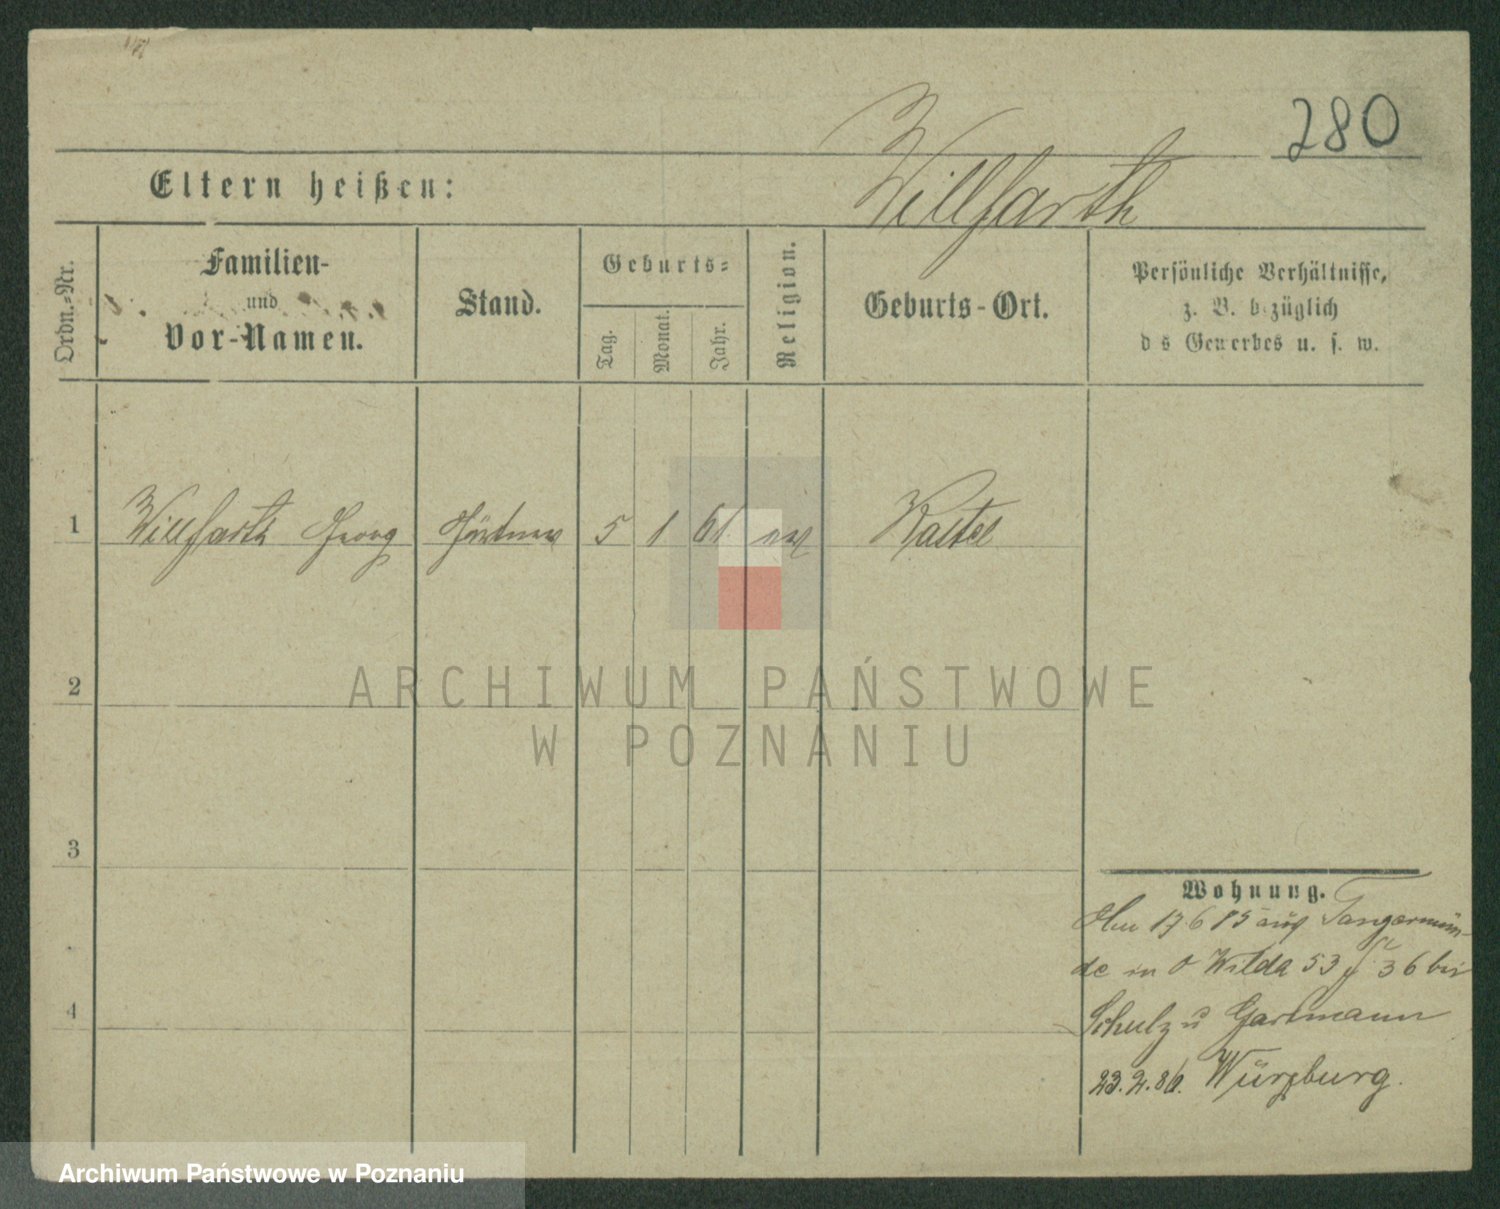 280
Willfarth
Eltern heißen:
Ordn.-Nr.
Familien-
und
Vor-Namen.
Stand.
Geburts-
Tag.
Monat.
Jahr.
Religion.
Geburts-Ort.
Persönliche Verhältnisse,
z. B. bezüglich
d s Gewerbes u. s. w.
1 Willfarth Georg Gärtner 5 1 61 ev Kastel
2
3
4
Wohnung.
17 6 85 aus Tangermün-
de in O Wilda 53 36 bei
Schulz u Gartmann
23.2.86. Würzburg.
ARCHIWUM PAŃSTWOWE
W POZNANIU
Archiwum Państwowe w Poznaniu